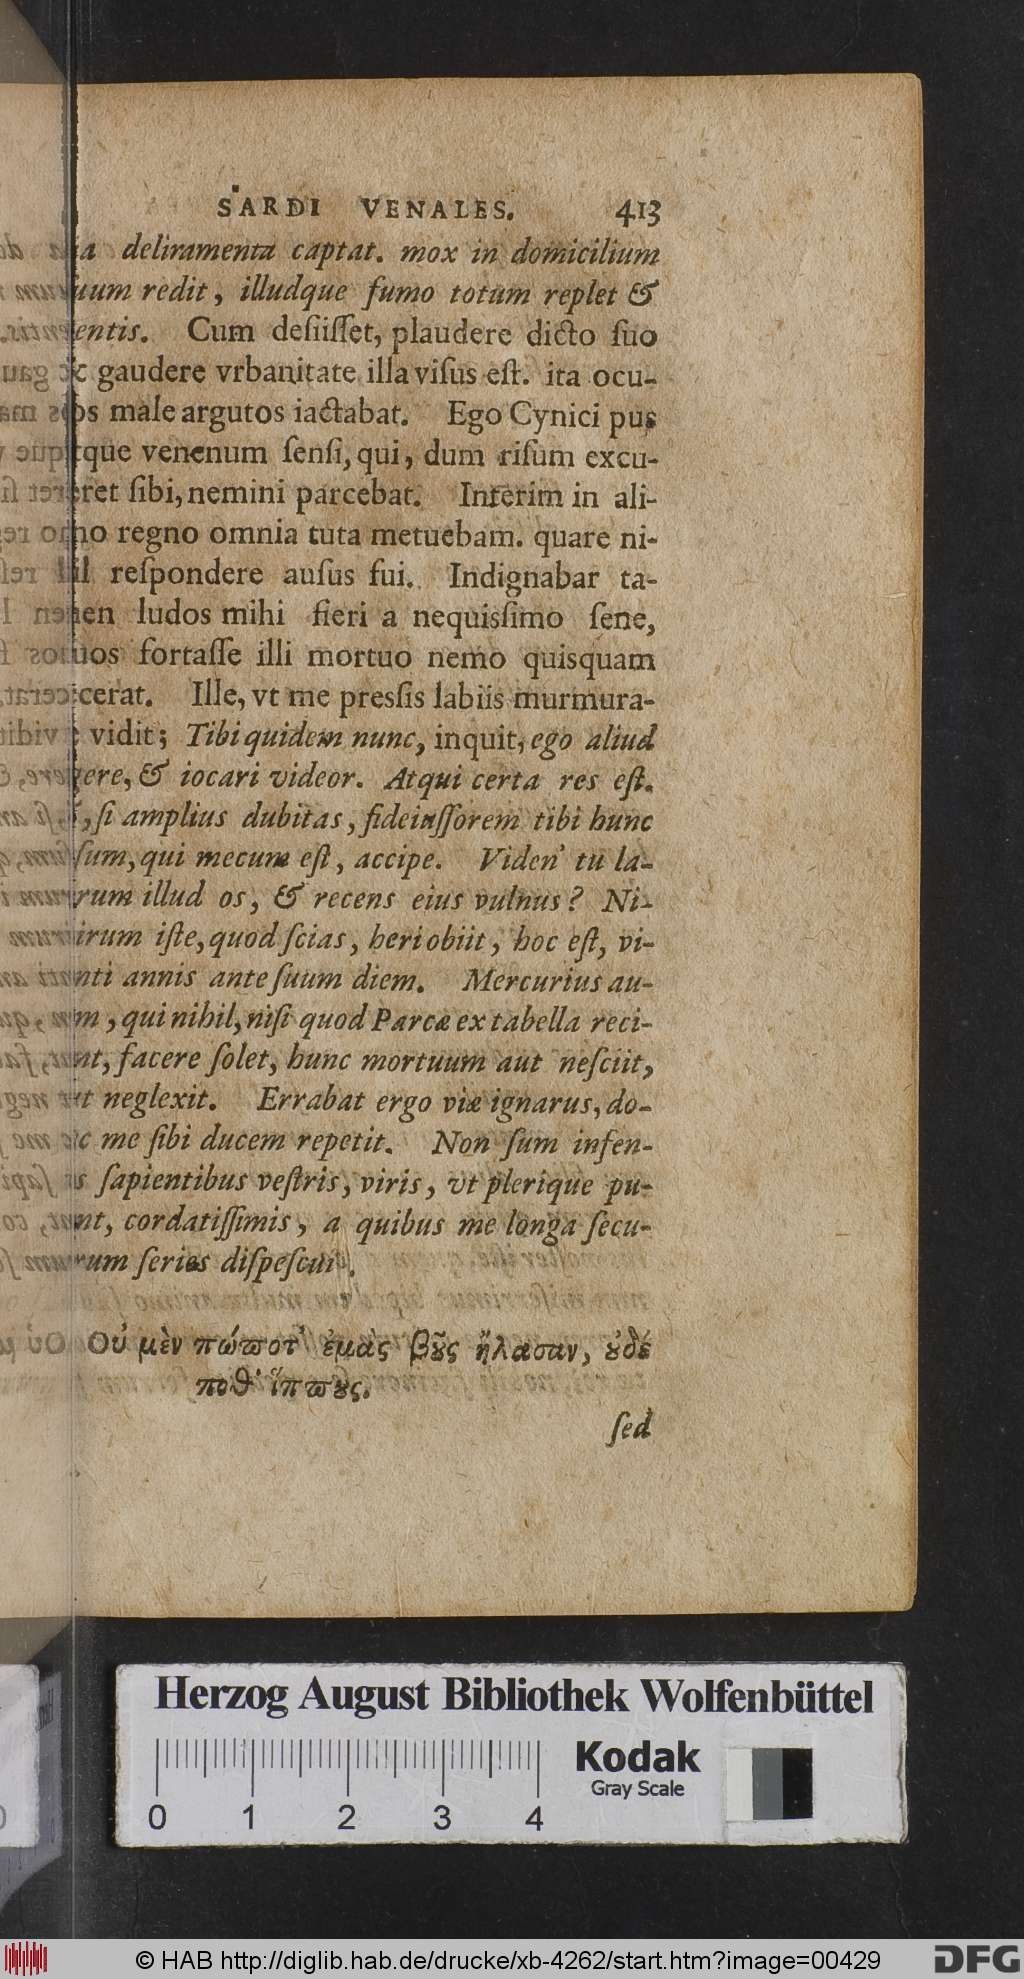 SARDI VENALES. 413
deliramenta captat. mox in domicilium
suum redit, illudque fumo totum replet &
sentis. Cum desiisset, plaudere dicto suo
& gaudere vrbanitate illa visus est. ita ocu-
los male argutos iactabat. Ego Cynici pus
atque venenum sensi, qui, dum risum excu-
teret sibi, nemini parcebat. Interim in ali-
eno regno omnia tuta metuebam. quare ni-
hil respondere ausus fui. Indignabar ta-
men ludos mihi fieri a nequissimo sene,
quos fortasse illi mortuo nemo quisquam
fecerat. Ille, vt me pressis labiis murmura-
re vidit; Tibi quidem nunc, inquit, ego aliud
agere, & iocari videor. Atqui certa res est.
&, si amplius dubitas, fideiussorem tibi hunc
ipsum, qui mecum est, accipe. Viden' tu la-
cerum illud os, & recens eius vulnus? Ni-
mirum iste, quod scias, heri obiit, hoc est, vi-
ginti annis ante suum diem. Mercurius au-
tem, qui nihil, nisi quod Parcæ ex tabella reci-
tant, facere solet, hunc mortuum aut nesciit,
aut neglexit. Errabat ergo viæ ignarus, do-
nec me sibi ducem repetit. Non sum infen-
sus sapientibus vestris, viris, vt plerique pu-
tant, cordatissimis, a quibus me longa secu-
lorum series dispescuit.
Οὐ μὲν πώποτ' ἐμὰς βοῦς ἤλασαν, οὐδέ
ποθ' ἵππους.
sed
Herzog August Bibliothek Wolfenbüttel
Kodak
Gray Scale
0 1 2 3 4
© HAB http://diglib.hab.de/drucke/xb-4262/start.htm?image=00429 DFG